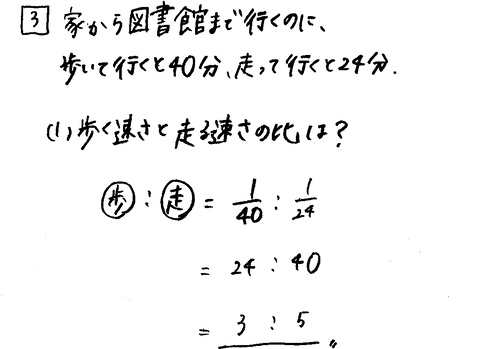 3 家から図書館まで行くのに、
歩いて行くと40分、走って行くと24分.
(1) 歩く速さと走る速さの比は？
歩 : 走 = 1/40 : 1/24
= 24 : 40
= 3 : 5 〃